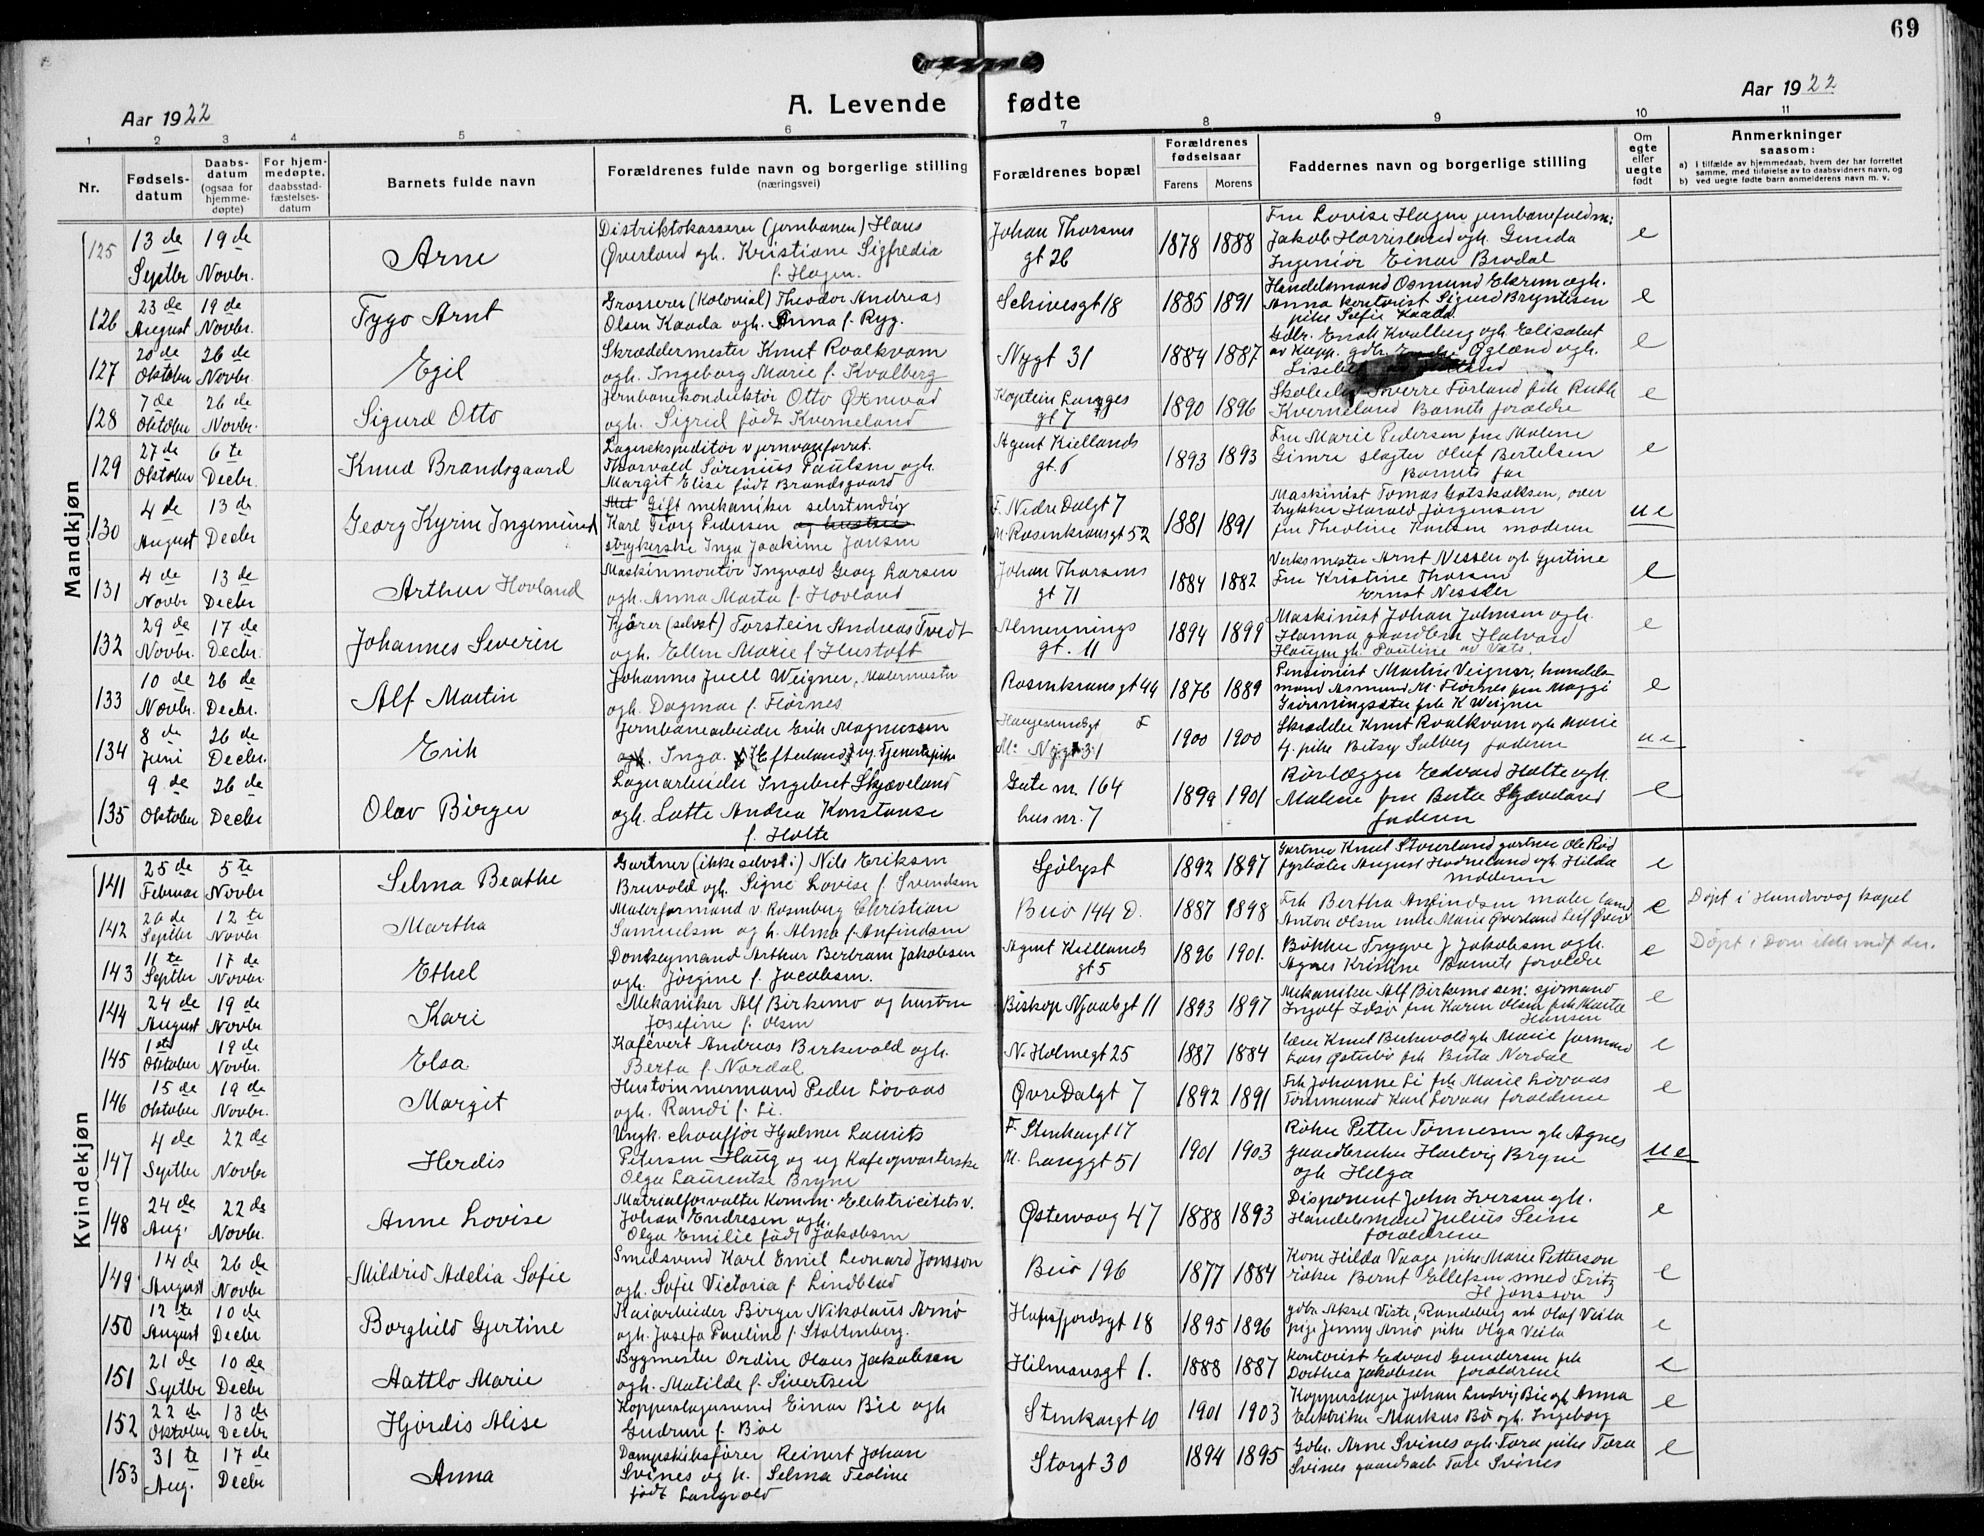 69
Aar 1922
A. Levende fødte
Aar 1922
1 2 3 4 5 6 7 8 9 10 11
Nr.
Fødsels-
datum
Daabs-
datum
(ogsaa for
hjemme-
døpte)
For hjem-
medøpte,
daabsstad-
fæstelses-
datum
Barnets fulde navn
Forældrenes fulde navn og borgerlige stilling
(næringsvei)
Forældrenes bopæl
Forældrenes
fødselsaar
Farens Morens
Faddernes navn og borgerlige stilling
Om
egte
eller
uegte
født
Anmerkninger
saasom:
a) I tilfælde av hjemmedaab, hvem der har forrettet
samme, med tilføielse av to daabsvidners navn, og
b) ved uegte fødte barn anmelderens navn m. v.
Mandkjøn
125 13de Septbr 19de Novbr. Arne
Distriktskasserer (jernbanen) Hans
Øverland ogh. Kristiane Sigfredia
f. Hagen.
Johan Thorsens
gt 26
1878 1888
Fru Lovise Hagen jernbanefuldm:
Jakob Harrisland ogh. Gunda
Ingeniør Einar Brodal
e
126 23de August 19de Novbr. Tygo Arnt
Grosserer (Kolonial) Theodor Andreas
Olsen Kaada ogh. Anna f. Ryg.
Schivesgt 18
1885 1891
Handelsmand Osmund Ekrem ogh.
Anna kontorist Sigurd Bryntesen
pike Sofie Kaada
e
127 20de Oktober 26de Novbr. Egil
Skræddermester Knut Roalkvam
ogh. Ingeborg Marie f. Kvalberg
Nygt 31
1884 1887
Gdbr. Enok Kvalberg ogh. Elisabet
av Klepp. gdbr. Øgland ogh.
e
128 7de Oktober 26de Novbr. Sigurd Otto
Jernbanekonduktør Otto
ogh. Sigrid født Kverneland
Kaptein Langes
gt 7
1890 1896
Sverre Førland frk Ruth
Kverneland Barnets forældre
e
129 27de Oktober 6te Decbr. Knud Brandsgaard
Lagerekspeditør v jernvareforret.
Thorvald Sørenius Paulsen ogh.
Margit Elise født Brandsgaard
Agent Kiellands
gt. 6
1893 1893
Fru Marie Pedersen fru Malene
Gimre slagter Oluf Bertelsen
Barnets far
e
130 4de August 13de Decbr Georg Kyrin Ingemund
Gift mekaniker selvstendig
Karl Georg Pedersen og hustru
strykerske Inga Joakime Jansen
F. Nedre Dalgt 7
M. Rosenkransgt 52
1881 1891
Maskinist Tomas Gotskalksen, over
trykker Harald Jørgensen
fru Theoline Hansen moderen
ue
131 4de Novbr 13de Decbr Arthur Hovland
Maskinmontør Ingvald Georg Larsen
ogh. Anna Marta f. Hovland
Johan Thorsens
gt 71
1884 1882
Verksmester Arnt Nessler og Gjertine
Fru Kristine Thorsen
Ernst Nessler
e
132 29de Novbr. 17de Decbr. Johannes Severin
Kjører (selvst) Torstein Andreas Tvedt
ogh. Ellen Marie f Hustoft
Almennings
gt. 11
1894 1899
Maskinist Johan Johnsen ogh.
Hanna gaardbru Halvard
Haugen gh. Pauline av Vats.
e
133 10de Novbr. 26de Decbr. Alf Martin
Johannes Juell Weigner, Malermester
ogh. Dagmar f. Flørnes
Rosenkransgt 44
1876 1889
Pensionist Martin Veigner, handels
mand Asmund M. Flørnes fru Maggi
Grønningsæter frk K Weigner
e
134 8de Juni 26de Decbr. Erik
Jernbanearbeider Erik Magnussen
ogh. Inga f. (Efterland) ug. Tjenestepike
Haugesundsgt F
M: Nygt 31
1900 1900
Skrædder Knut Roalkvam ogh Marie
f. pike Betsy Salberg faderen
ue
135 9de Oktober 26de Decbr Olav Birger
Lagerarbeider Ingebret Skjæveland
ogh. Lotte Andrea Konstanse
f. Holte
Gate nr. 164
hus nr. 7
1899 1901
Rørlægger Edvard Holte ogh.
Malene fru Berta Skjæveland
faderen
e
Kvindekjøn
141 25de Februar 5te Novbr Selma Beathe
Gartner (ikke selvst:) Nils Eriksen
Bruvold ogh. Signe Lovise f. Svendsen
Sjølyst
1892 1897
Gartner Knut Stoerland gartner Ole Rød
fyrbøter August Hodneland ogh Hilda
moderen
e
142 20de Septbr 12te Novbr Martha
Malerformand v. Rosenberg Christian
Samuelsen og h. Alma f. Anfindsen
Buø 144 D.
1887 1898
Frk Bertha Anfindsen maler
Anton Olsen enke Marie Øverland Leif Øver
e
Døpt i Hundvaag kapel
143 11te Septbr 17de Novbr Ethel
Donkeymand Arthur Bertram Jakobsen
ogh. Jørgine f. Jacobsen.
Agent Kiellands
gt 5
1896 1901.
Bøkker Trygve J Jakobsen ogh.
Agnes Kristine Barnets forældre
e
Døpt i Dom
144 24de August 19de Novbr Kari
Mekaniker Alf Birkemo og hustru
Josefine f. Olsen
Biskop Njaalsgt 11
1893 1897
Mekaniker Alf Birkemo sen: sjømand
Ingolf Idsø fru Karen Olsen frk Marta
Hansen
e
145 1ste Oktober 19de Novbr. Elsa
Kafévert Andreas Birkevold ogh.
Berta f. Nordal
N. Holmegt 25
1887 1884
Lærer Knut Birkevold gh. Marie formand
Lars Østebø frk Berta Nordal
e
146 15de Oktober 19de Novbr. Margit
Hustømmermand Peder Lovaas
ogh. Randi f. Li.
Øvre Dalgt 7
1892 1891
Frk Johanne Li frk Marie Lovaas
Tømmermd Karl Lovaas forældrene
e
147 4de Septbr 22de Novbr Herdis
Ungk. chauffør Hjalmar Laurits
Petersen Haug og ug Kafeopvarterske
Olga Laurentse Bryne
F. Stenhaugt 17
M. Langgt 51
1901 1903
Røker Petter Tønnesen gh Agnes
gaardbruker Hartvig Bryne
ogh Helga
ue
148 24de Aug. 22de Novbr. Anne Lovise
Matrialforvalter Komm. Elektricitetsv.
Johan Endresen ogh.
Olga Emilie født Jakobsen
Østervaag 47
1888 1893
Disponent John Iversen ogh.
Handelsmand Julius Seim
forældrene
e
149 14de August 26de Novbr Mildrid Adelia Sofie
Smedsvend Karl Emil Leonard Jonsson
ogh. Sofie Victoria f Lindblad
Buø 196
1877 1884
Kone Hilda Vaage pike Marie Petterson
røker Bernt Ellefsen smed Fritz
H Jonsson
e
150 12te August 10de Decbr Borghild Gjertine
Kaiarbeider Birger Nikolaus Arnø
ogh. Josefa Pauline f. Stoltenberg.
Hafrsfjordsgt 18
1895 1896
gdbr Aksel Viste, Randeberg Olaf Veila
pige Jenny Arnø pike Olga Veila
e
151 21de Septbr 10de Decbr Hattlo Marie
Bygmester Ordin Olaus Jakobsen
ogh. Matilde f. Sivertsen
Hilmarsgt 1.
1888 1887
Kontorist Edvard Gundersen frk
Dorthea Jakobsen forældrene
e
152 22de Oktober 13de Decbr Hjørdis Alise
Kopperslagersvend Einar Bie ogh
Gudrun f. Bøe
Stenkargt 10
1901 1903
Kopperslager Johan Ludvig Bie ogh Anna
Elektriker Markus Bø ogh. Ingeborg
e
153 31te Aug. 17de Decbr Anna
Dampskibsfører Reinert Johan
Svines og h. Selma Teoline
født Langvold
Storgt 30
1894 1895
Gdbr. Arne Svines ogh. Tora pike Tora
Svines gaardsarb Tore Svines
e